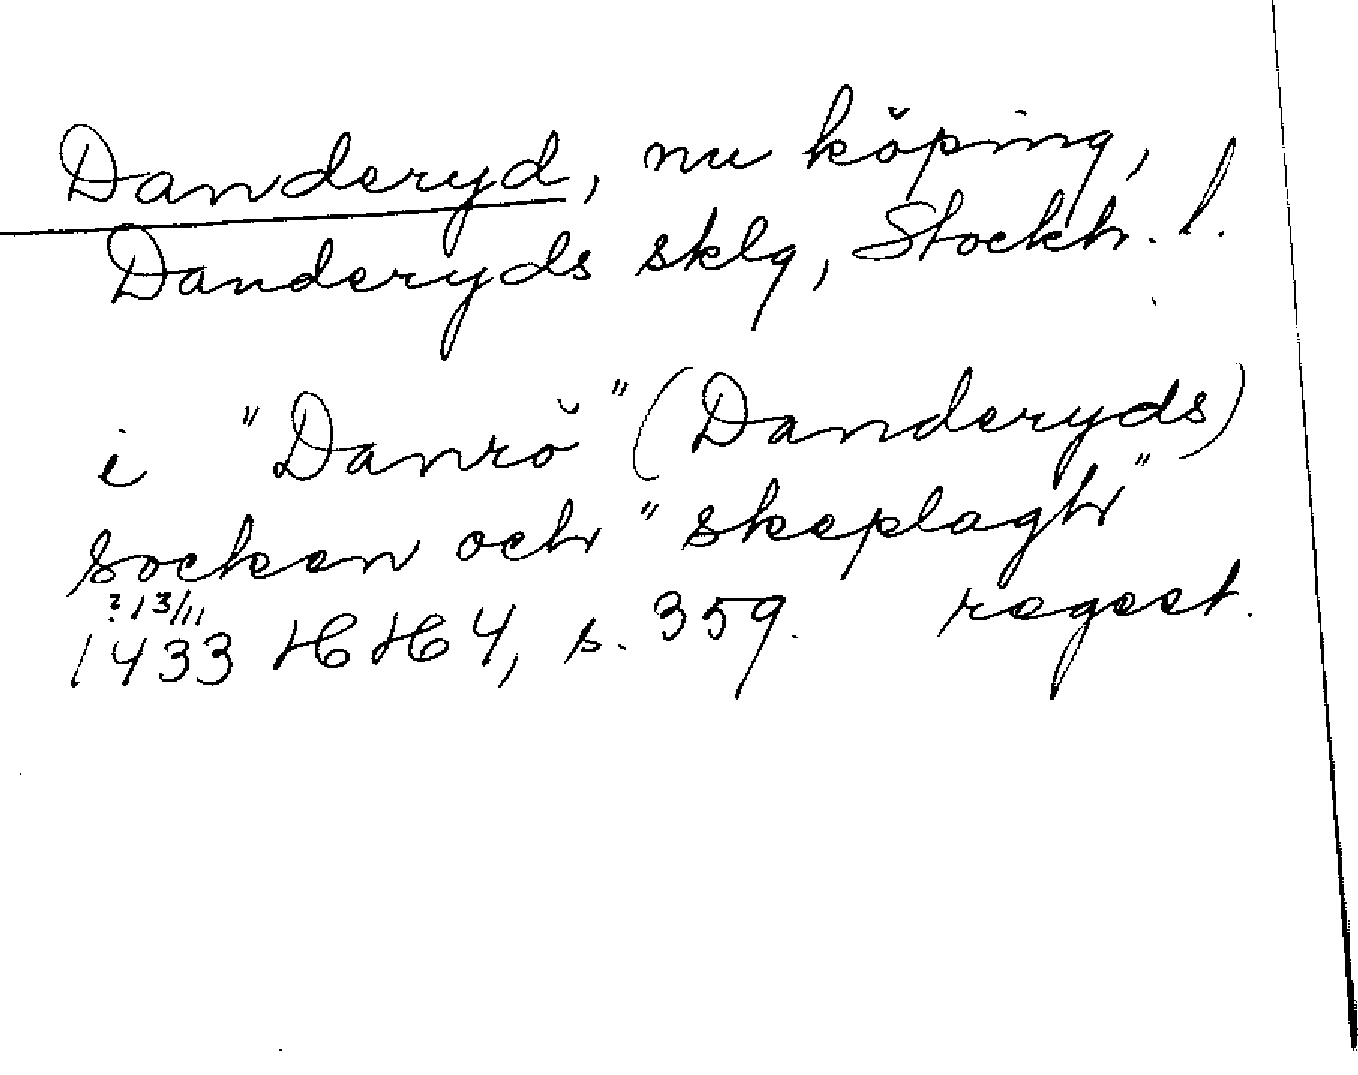 Danderyd, nu köping,
Danderyds sklg, Stockh. l.
i "Danrö" (Danderyds)
socken och "skeplagh"
? 13/11
1433 HH 4, s. 359. regest.